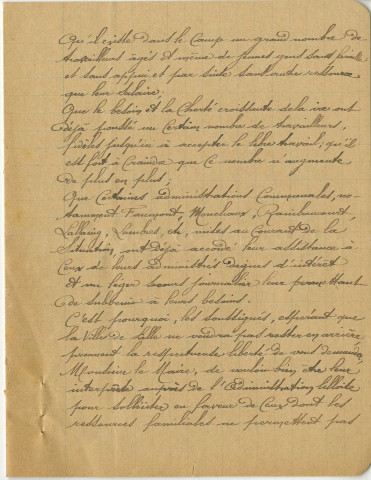 Qu'il existe dans le Camp un grand nombre de
travailleurs âgés et même de jeunes gens sans famille
et sans appui et par suite sans autre ressource
que leur salaire,
Que le besoin et la Cherté croissante de la vie ont
déjà fait un Certain nombre de travailleurs,
jusqu'ici à accepter le libre travail, qu'il
est fort à Craindre que ce nombre n'augmente
de plus en plus;
Que Certaines administrations Communales, no-
tamment Faumont, Mouchaux, Raimbeaucourt,
Lallaing, Landas, etc, mises au Courant de la
Situation, ont déjà accordé leur assistance à
Ceux de leurs administrés dignes d'intérêt
et un léger secours journalier leur permettant
de subvenir à leurs besoins.
C'est pourquoi, les soussignés, espérant que
la Ville de Lille ne voudra pas rester en arrière
prennent la respectueuse liberté de vous demander,
Monsieur le Maire, de vouloir bien être leur
interprète auprès de l'Administration lilloise
pour solliciter en faveur de Ceux dont les
ressources familiales ne permettent pas